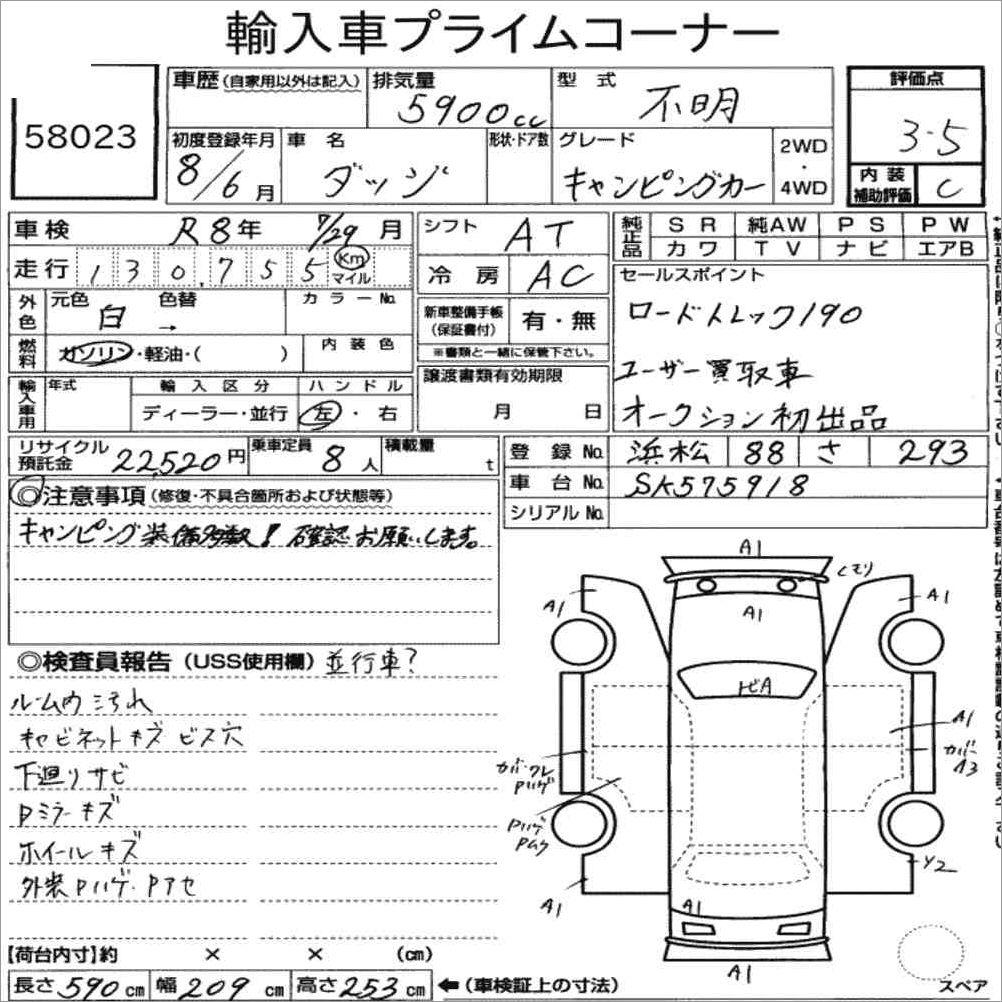 輸入車プライムコーナー
58023
車歴(自家用以外は記入)
排気量
5900cc
型 式
不明
評価点
3.5
内装補助評価
C
初度登録年月
8/6月
車 名
ダッジ
形状・ドア数
グレード
キャンピングカー
2WD・4WD
車検 R8年 7/29月
シフト AT
純正品
SR 純AW PS PW
カワ TV ナビ エアB
走行 130,755 Km マイル
冷房 AC
セールスポイント
ロードトレック190
ユーザー買取車
オークション初出品
外色
元色 白 → 色替
カラーNo.
新車整備手帳(保証書付) 有・無
※書類と一緒に保管下さい。
燃料
ガソリン・軽油・( )
内装色
譲渡書類有効期限
月 日
輸入車用
年式
輸入区分
ディーラー・並行
ハンドル
左・右
リサイクル預託金 22,520円
乗車定員 8人
積載量 t
登録No. 浜松 88 さ 293
車台No. SK575918
シリアルNo.
◎注意事項(修復・不具合箇所および状態等)
キャンピング装備多数! 確認お願いします。
◎検査員報告(USS使用欄) 並行車?
ルーム内シミ汚れ
キャビネットキズ ビス穴
下廻りサビ
Pミラーキズ
ホイールキズ
外装Pハゲ・Pアセ
A1
クモリ
A1
A1
A1
トビA
A1
カバーA3
カバーワレPハゲ
PハゲPムケ
Y2
A1
A1
A1
スペア
【荷台内寸】約 × × (cm)
長さ590cm 幅209cm 高さ253cm ←(車検証上の寸法)